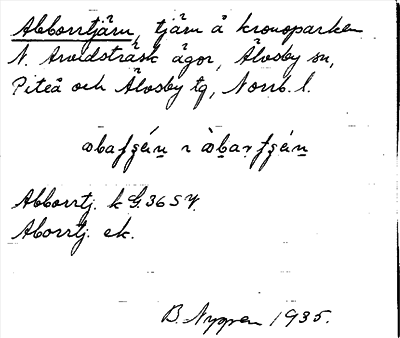 Abborrtjärn, tjärn å kronoparken
N. Arvidsträsk ägor, Älvsby sn,
Piteå och Älvsby tg, Norrb. l.
Abborrtj. k G. 36 SV.
Aborrtj. ek.
B. Nygren 1935.